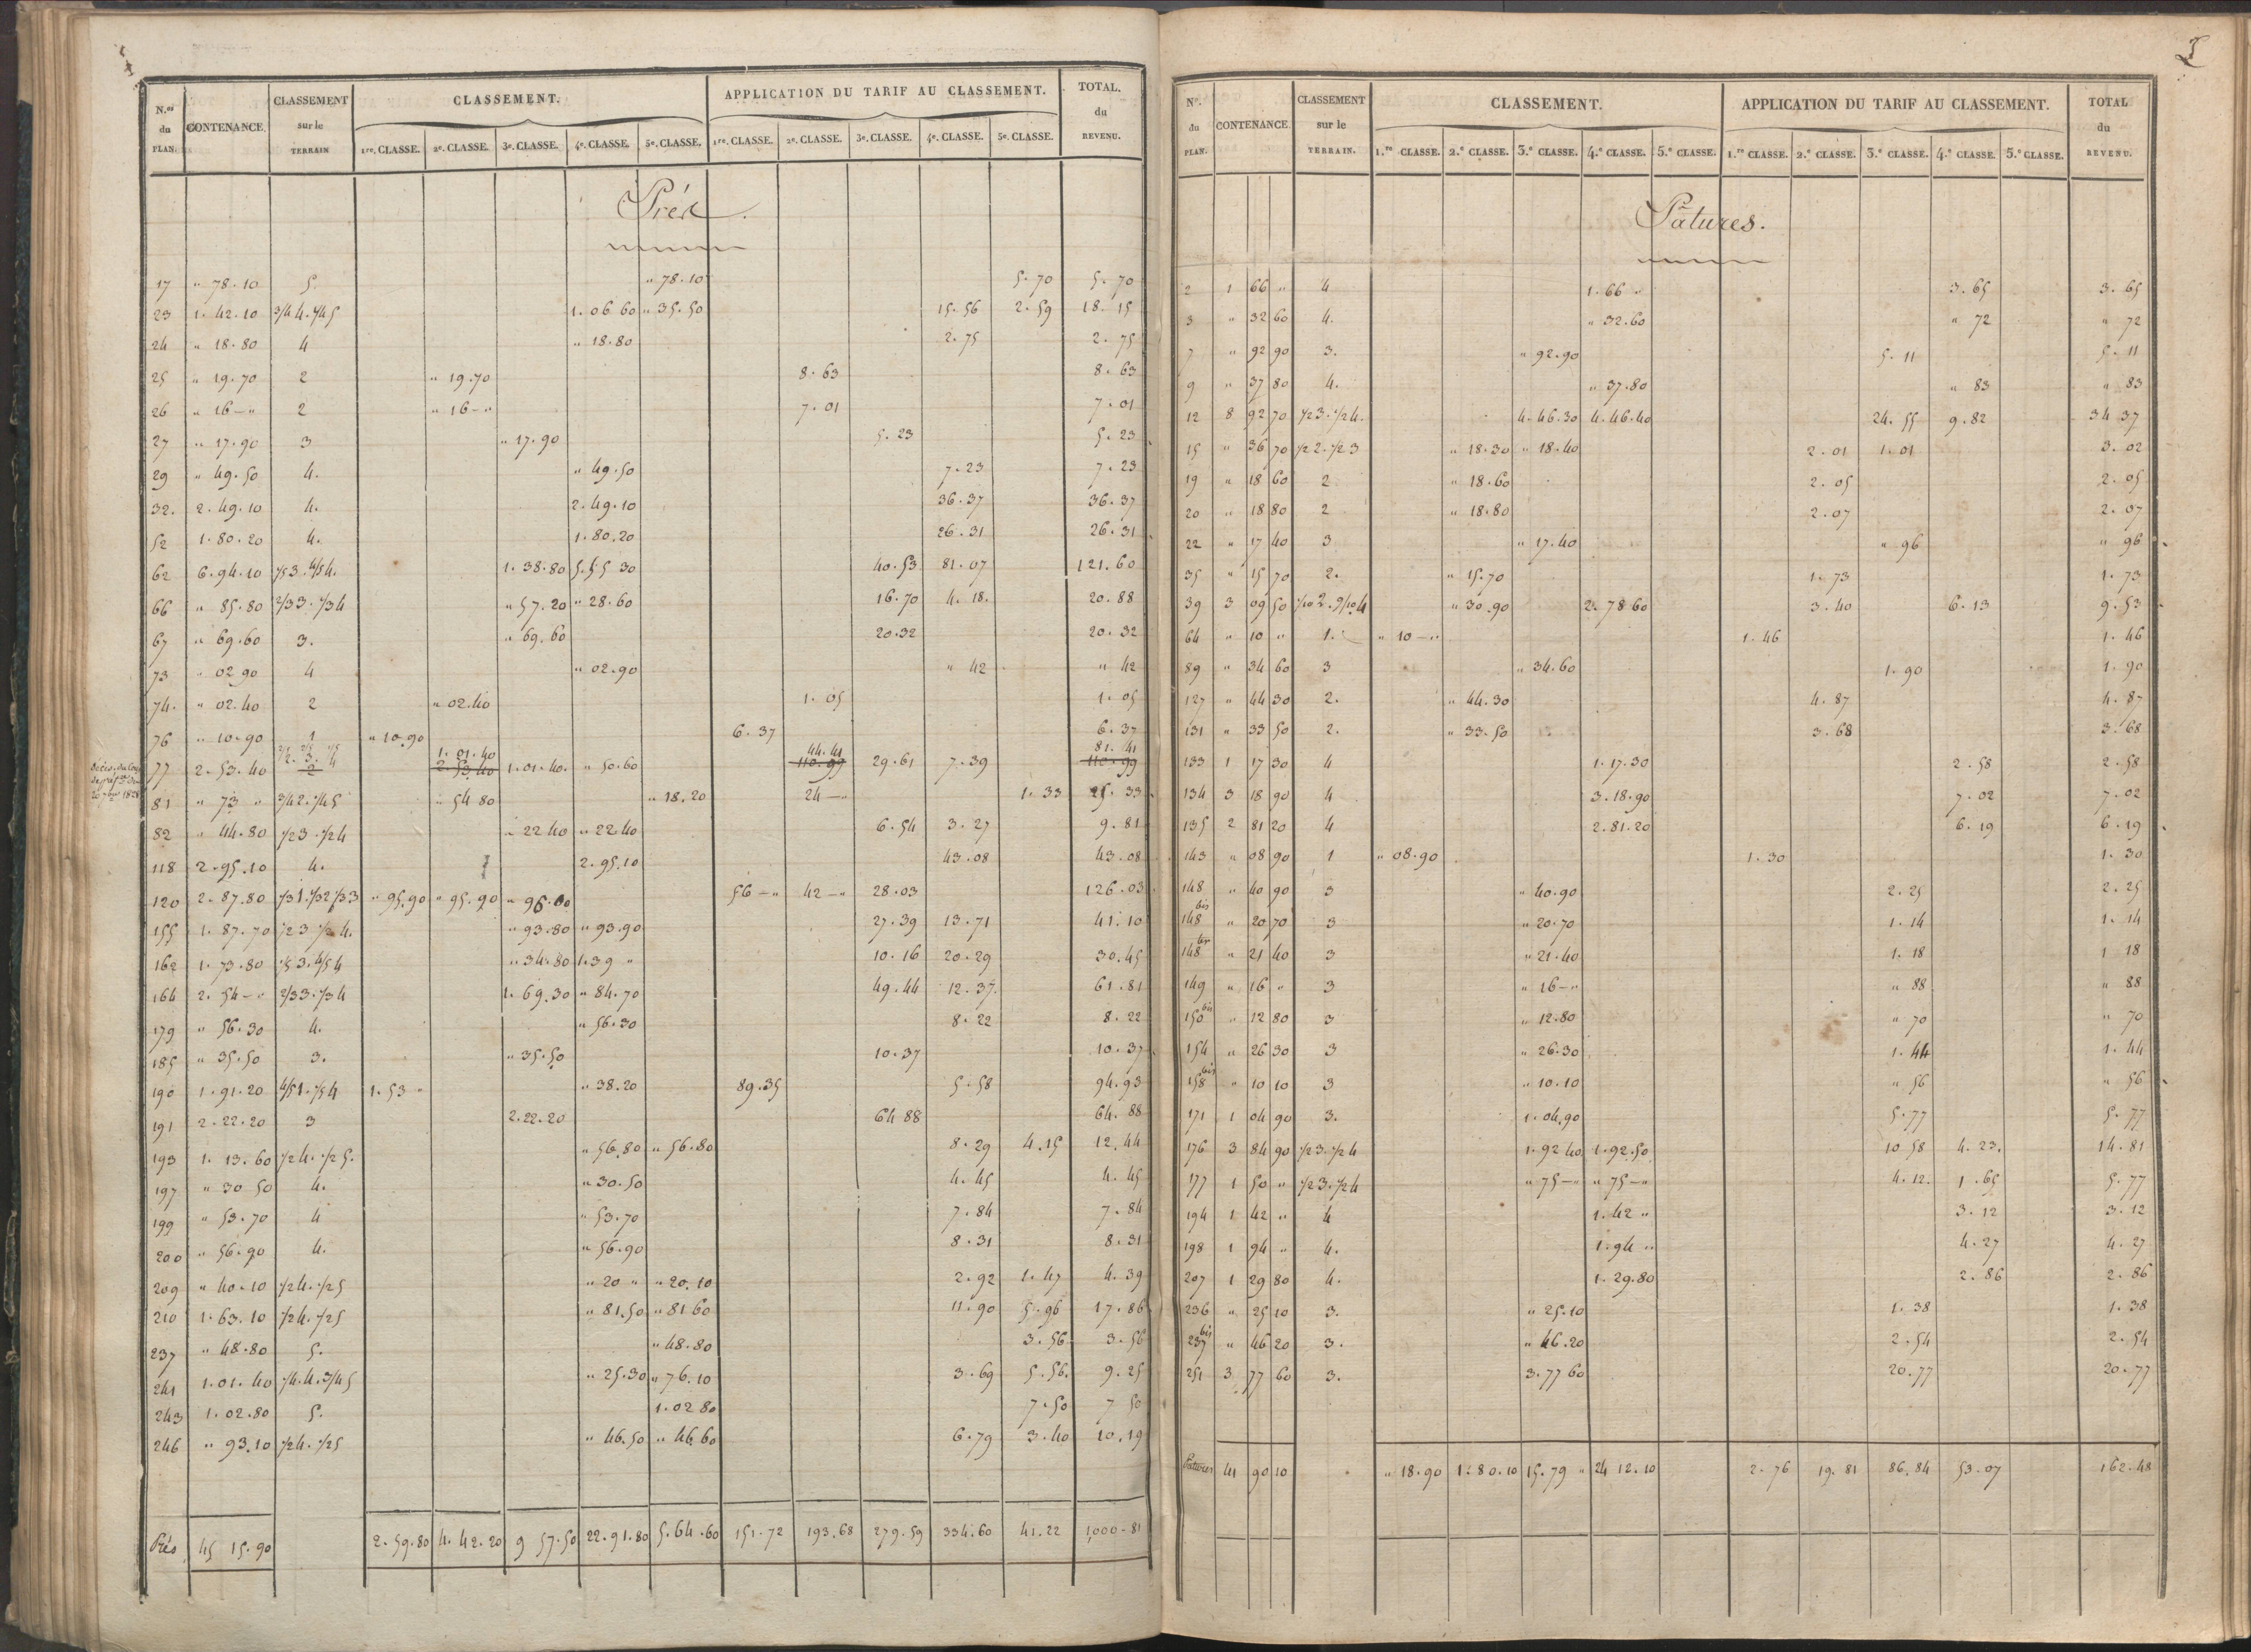 N.os du PLAN. CONTENANCE. CLASSEMENT sur le TERRAIN CLASSEMENT. APPLICATION DU TARIF AU CLASSEMENT. TOTAL. du REVENU.
1re. CLASSE. 2e. CLASSE. 3e. CLASSE. 4e. CLASSE. 5e. CLASSE. 1re. CLASSE. 2e. CLASSE. 3e. CLASSE. 4e. CLASSE. 5e. CLASSE.
Prés.
17 " 78.10 5. " 78.10 5.70 5.70
23 1.42.10 3/4 4. 1/4 5 1.06 60 " 35.50 15.56 2.59 18.15
24 " 18.80 4 " 18.80 2.75 2.75
25 " 19.70 2 " 19.70 8.63 8.63
26 " 16 – " 2 " 16 – " 7.01 7.01
27 " 17.90 3 " 17.90 5.23 5.23
29 " 49.50 4. " 49.50 7.23 7.23
32. 2.49.10 4. 2.49.10 36.37 36.37
52 1.80.20 4. 1.80.20 26.31 26.31
62 6.94.10 1/5 3. 4/5 4. 1.38.80 5.55 30 40.53 81.07 121.60
66 " 85.80 2/3 3. 1/3 4 " 57.20 " 28.60 16.70 4.18. 20.88
67 " 69.60 3. " 69.60 20.32 20.32
73 " 02 90 4 " 02.90 " 42 " 42
74. " 02.40 2 " 02.40 1.05 1.05
76 " 10.90 1 " 10.90 6.37 6.37
77 2.53.40 2/5 2. 2/5 3. 1/5 4 2 1.01.40 2.53.40 1.01.40. " 50.60 44.41 110.99 29.61 7.39 81.41 110.99
81 " 73 " 3/4 2. 1/4 5 " 54 80 " 18.20 24 – " 1.33 25.33
82 " 44.80 1/2 3. 1/2 4 " 22 40 " 22.40 6.54 3.27 9.81
118 2.95.10 4. 2.95.10 43.08 43.08
120 2.87.80 1/3 1. 1/3 2 1/3 3 " 95.90 " 95.90 " 96.00 56 – " 42 – " 28.03 126.03
155 1.87.70 1/2 3 1/2 4. " 93.80 " 93.90 27.39 13.71 41.10
162 1.73.80 1/5 3. 4/5 4 " 34.80 1.39 " 10.16 20.29 30.45
164 2.54 – " 2/3 3. 1/3 4 1.69.30 " 84.70 49.44 12.37. 61.81
179 " 56.30 4. " 56.30 8.22 8.22
185 " 35.50 3. " 35.50 10.37 10.37
190 1.91.20 4/5 1. 1/5 4 1.53 " " 38.20 89.35 5.58 94.93
191 2.22.20 3 2.22.20 64 88 64.88
193 1.13.60 1/2 4. 1/2 5. " 56.80 " 56.80 8.29 4.15 12.44
197 " 30 50 4. " 30.50 4.45 4.45
199 " 53.70 4 " 53.70 7.84 7.84
200 " 56.90 4. " 56.90 8.31 8.31
209 " 40.10 1/2 4. 1/2 5 " 20 " " 20.10 2.92 1.47 4.39
210 1.63.10 1/2 4. 1/2 5 " 81.50 " 81 60 11.90 5.96 17.86
237 " 48.80 5. " 48.80 3.56 3.56
241 1.01.40 1/4 4. 3/4 5 " 25.30 " 76.10 3.69 5.56. 9.25
243 1.02.80 5. 1.02 80 7.50 7 50
246 " 93.10 1/2 4. 1/2 5 " 46.50 " 46.60 6.79 3.40 10.19
Prés 45 15.90 2.59.80 4.42.20 9 57.50 22.91.80 5.64.60 151.72 193.68 279.59 334.60 41.22 1,000.81
N.os du PLAN. CONTENANCE. CLASSEMENT sur le TERRAIN. CLASSEMENT. APPLICATION DU TARIF AU CLASSEMENT. TOTAL du REVENU.
1.re CLASSE. 2.e CLASSE. 3.e CLASSE. 4.e CLASSE. 5.e CLASSE. 1.re CLASSE. 2.e CLASSE. 3.e CLASSE. 4.e CLASSE. 5.e CLASSE.
Pâtures.
2 1 66 " 4 1.66 " 3.65 3.65
3 " 32 60 4. " 32.60 " 72 " 72
7 " 92 90 3. " 92.90 5.11 5.11
9 " 37 80 4. " 37.80 " 83 " 83
12 8 92 70 1/2 3. 1/2 4. 4.46.30 4.46.40 24.55 9.82 34 37
15 " 36 70 1/2 2. 1/2 3 " 18.30 " 18.40 2.01 1.01 3.02
19 " 18 60 2 " 18.60 2.05 2.05
20 " 18 80 2 " 18.80 2.07 2.07
22 " 17 40 3 " 17.40 " 96 " 96
35 " 15 70 2. " 15.70 1.73 1.73
39 3 09 50 1/10 2. 9/10 4 " 30.90 2.78 60 3.40 6.13 9.53
64 " 10 " 1. " 10 – " 1.46 1.46
89 " 34 60 3 " 34.60 1.90 1.90
127 " 44 30 2. " 44.30 4.87 4.87
131 " 33 50 2. " 33.50 3.68 3.68
133 1 17 30 4 1.17.30 2.58 2.58
134 3 18 90 4 3.18.90 7.02 7.02
135 2 81 20 4 2.81.20 6.19 6.19
143 " 08 90 1 " 08.90 1.30 1.30
148 " 40 90 3 " 40.90 2.25 2.25
148 bis " 20 70 3 " 20.70 1.14 1.14
148 ter " 21 40 3 " 21.40 1.18 1 18
149 " 16 " 3 " 16 – " " 88 " 88
150 bis " 12 80 3 " 12.80 " 70 " 70
154 " 26 30 3 " 26.30 1.44 1.44
158 bis " 10 10 3 " 10.10 " 56 " 56
171 1 04 90 3. 1.04.90 5.77 5.77
176 3 84 90 1/2 3. 1/2 4 1.92 40 1.92.50 10 58 4.23. 14.81
177 1 50 " 1/2 3. 1/2 4 " 75 – " " 75 – " 4.12. 1.65 5.77
194 1 42 " 4 1.42 " 3.12 3.12
198 1 94 " 4. 1.94 " 4.27 4.27
207 1 29 80 4. 1.29.80 2.86 2.86
236 " 25 10 3. " 25.10 1.38 1.38
237 bis " 46 20 3. " 46.20 2.54 2.54
251 3 77 60 3. 3.77 60 20.77 20.77
Pâtures 41 90 10 " 18.90 1.80.10 15.79 " 24 12.10 2.76 19.81 86.84 53.07 162.48